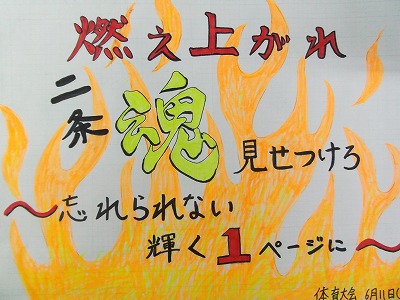 燃え上がれ
二条魂見せつけろ
～忘れられない
輝く1ページに～
体育大会 6月11日(